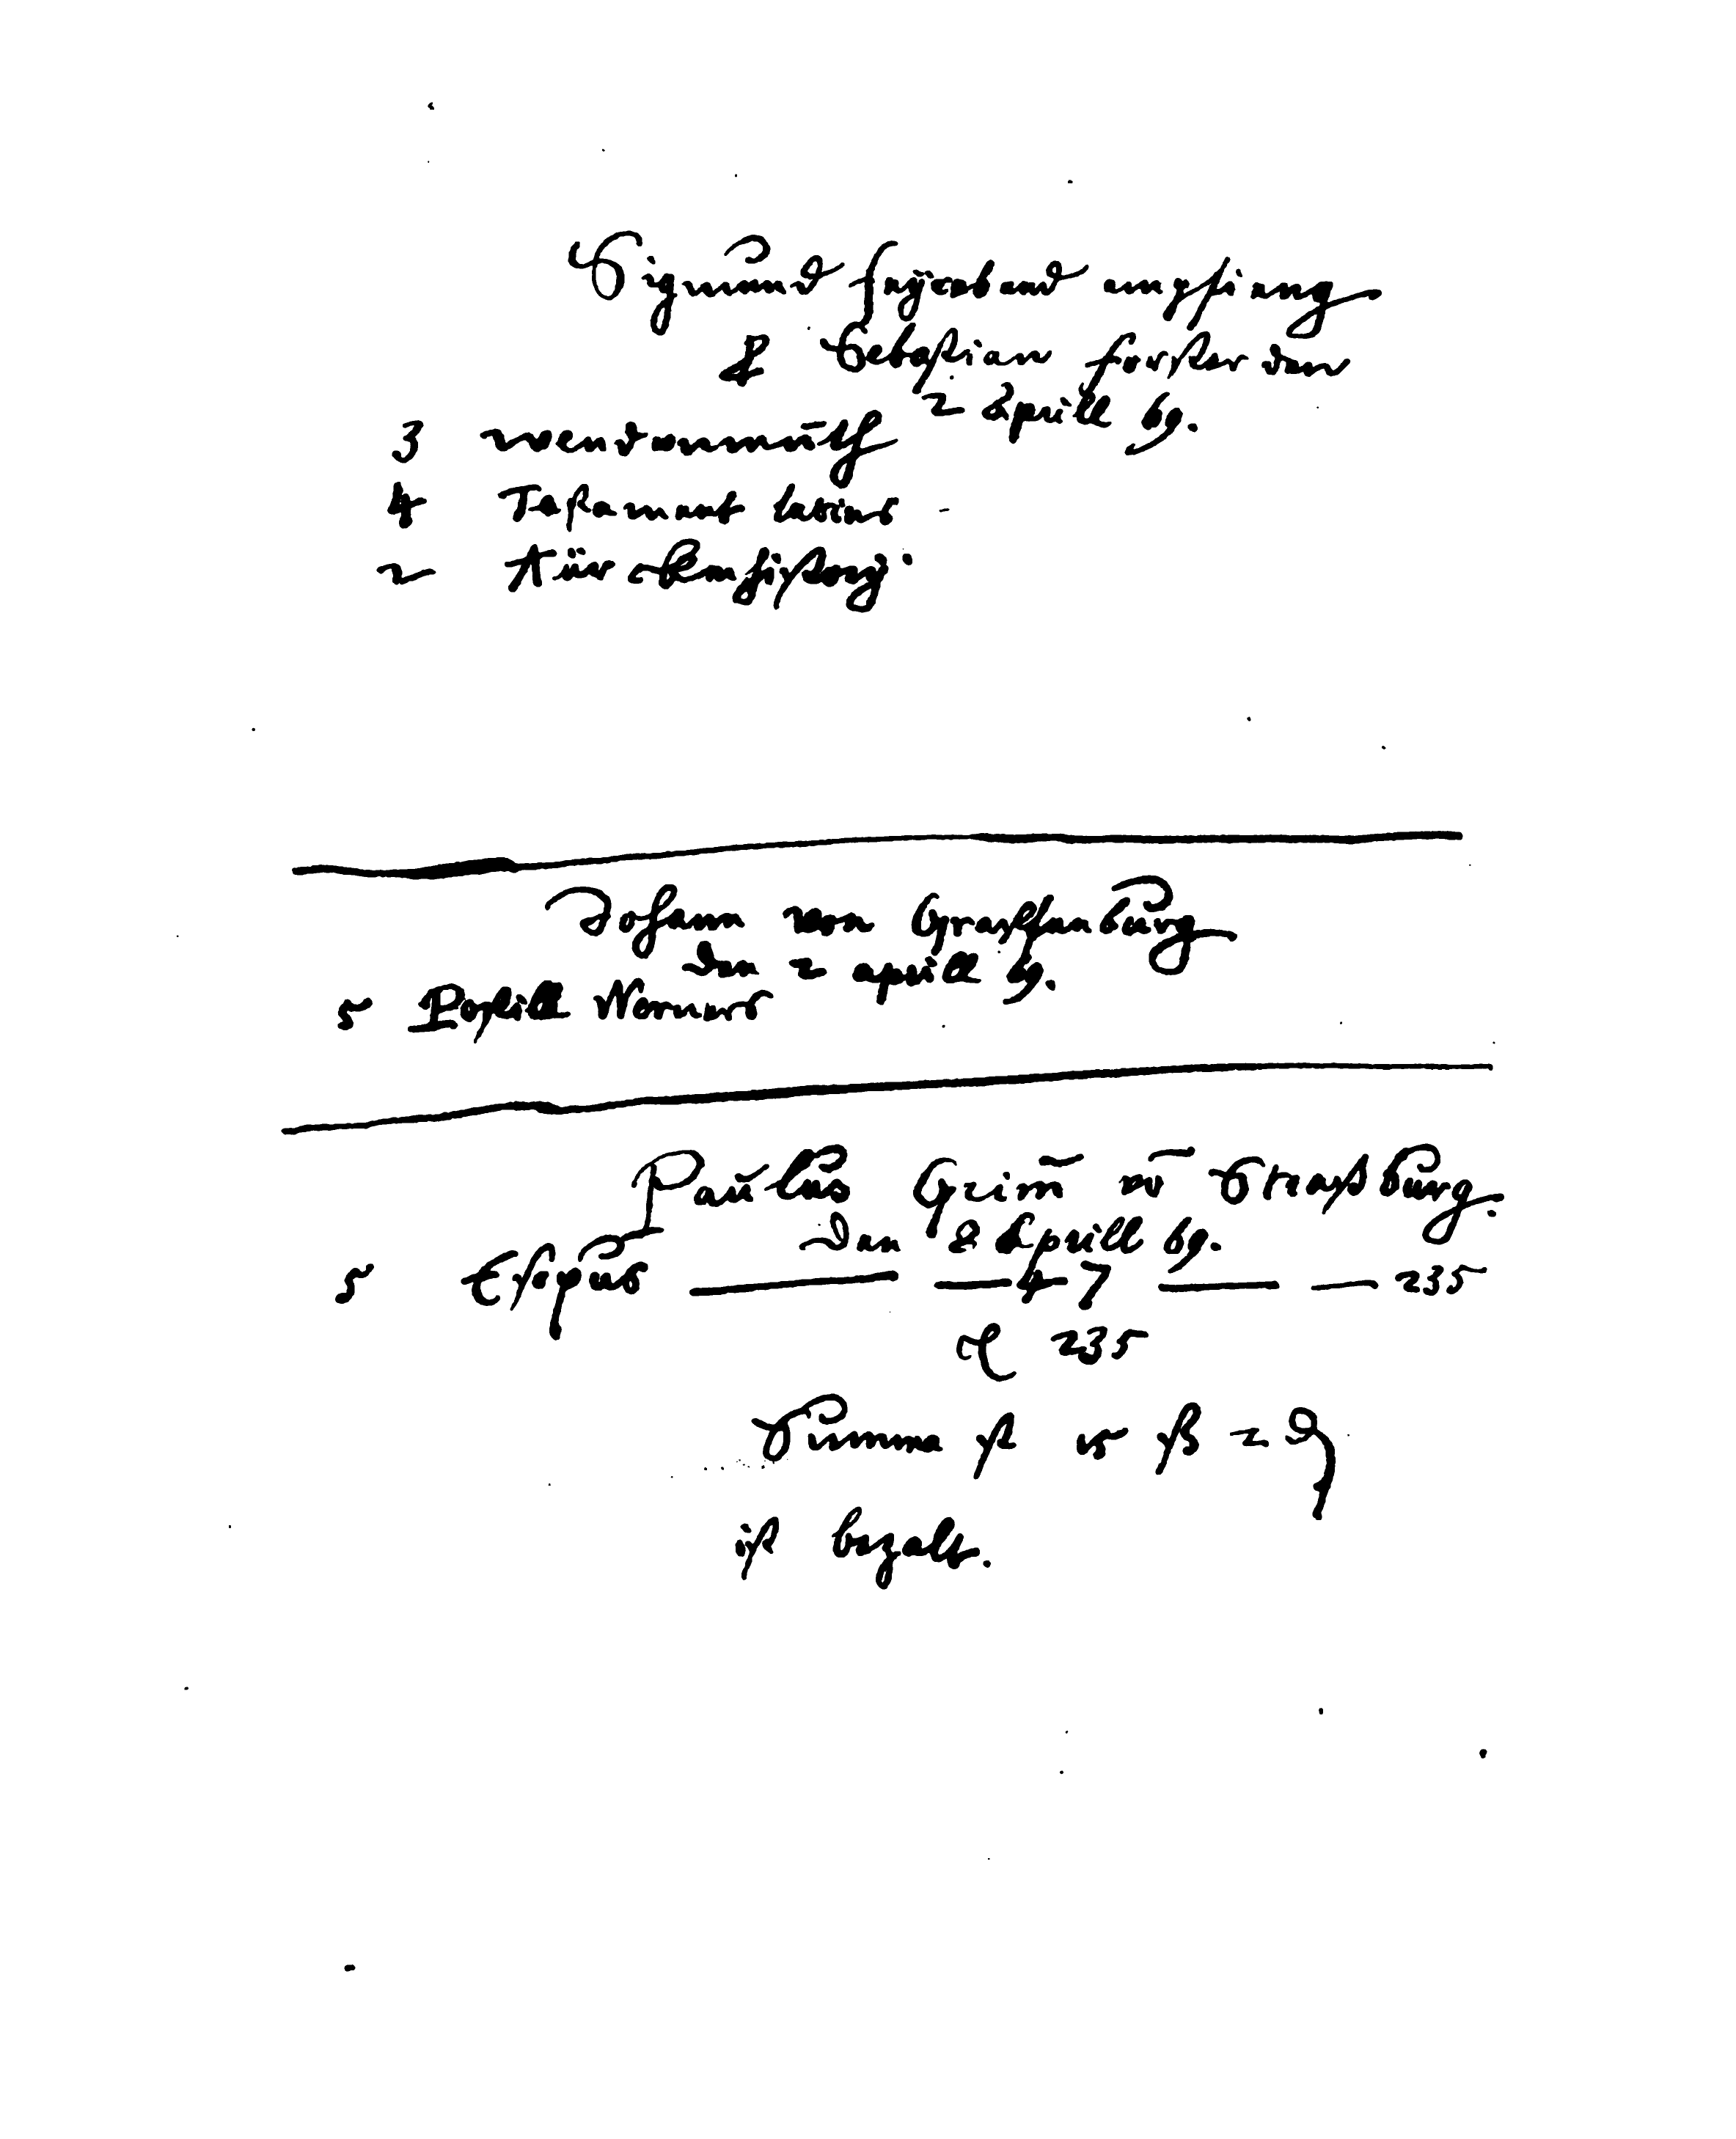 Sigmund feyerabend empfieng
& Sebastian forster den
2 Aprill 69.
3 wendonmuth
4 Testament latins
2
Johann von Graffenburg
den 2 aprill 69.
5 Postill
Paulus Grim vō Straßburg.
den 8 Aprill 69.
5 Esopus 47 235
235
Summa ß 2
ist bezalt.